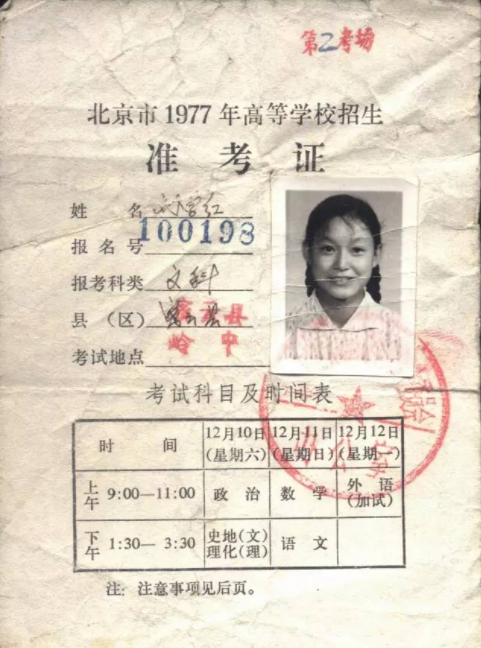 第2考场
北京市1977年高等学校招生
准考证
姓 名
报名号 100198
报考科类 文科
县（区） 密云县
考试地点
考试科目及时间表
时 间 12月10日(星期六) 12月11日(星期日) 12月12日(星期一)
上午 9:00—11:00 政治 数学 外语(加试)
下午 1:30— 3:30 史地(文)理化(理) 语文
注: 注意事项见后页。